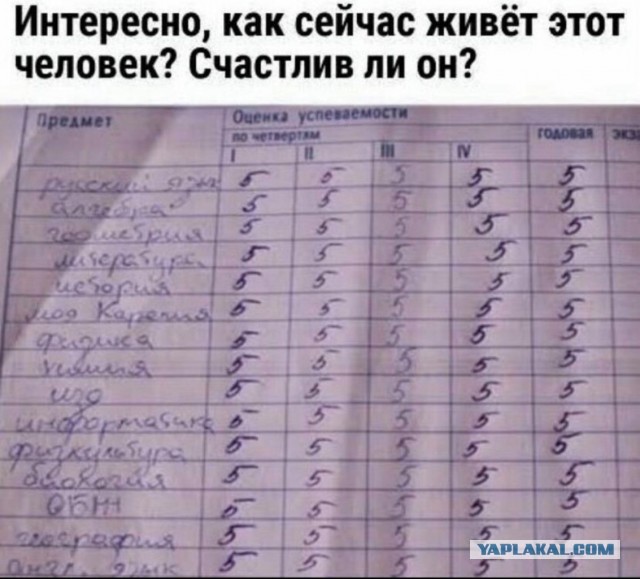 Интересно, как сейчас живёт этот
человек? Счастлив ли он?
Предмет Оценка успеваемости
по четвертям годовая экз
I II III IV
русский язык 5 5 5 5 5
алгебра 5 5 5 5 5
геометрия 5 5 5 5 5
литература 5 5 5 5 5
история 5 5 5 5 5
моя Карелия 5 5 5 5 5
физика 5 5 5 5 5
химия 5 5 5 5 5
изо 5 5 5 5 5
информатика 5 5 5 5 5
физкультура 5 5 5 5 5
биология 5 5 5 5 5
ОБЖ 5 5 5 5 5
география 5 5 5 5 5
англ. язык 5 5 5 5
YAPLAKAL.COM